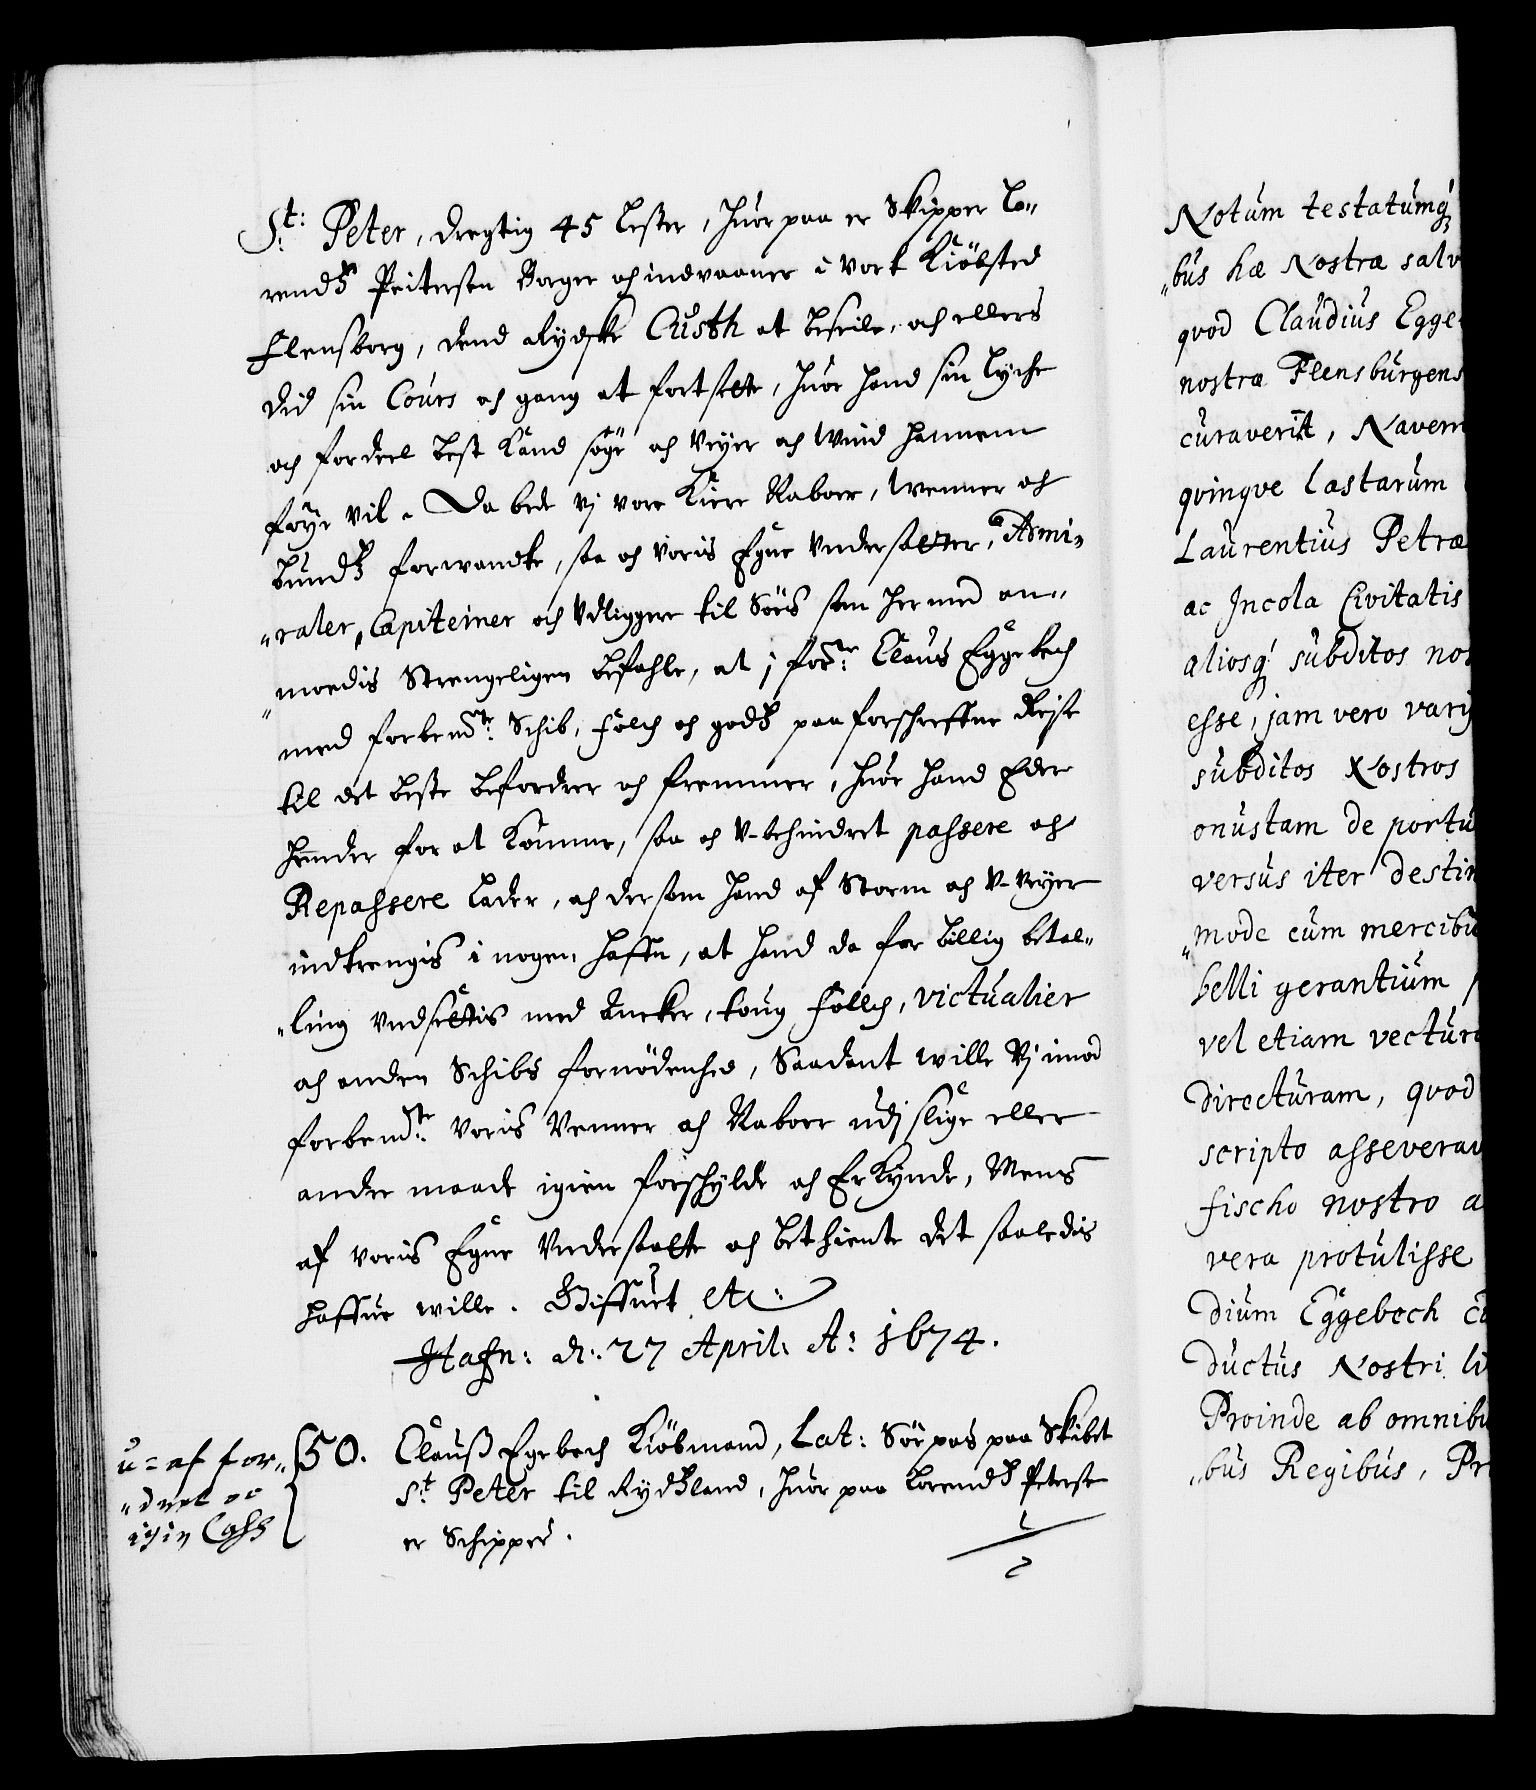 St: Peter, dregtig 45 Lester, huor paa er Skipper Lo-
rendtz Peitersen Borger och indvaaner i vort Kiöbsted
Flensborg, dend Rydske Custh at beseile, och ellers
did sin Cours och gang at fortsette, huor hand sin lyche
och fordeel best kand söge och Veyer och Wind hannem
föye vil. Da bede Vj vore Kiere Naboer, Wenner och
bundtz forwandte, saa och Voris Egne Undersaatter, Admi-
"raler, Capiteiner och Udliggere til Söes som her med an-
"modis Strengeligen befahle, at i forne: Claus Eggebech
med forbemte: Schib, folch och godtz paa forschreffne Rejse
til det beste befordrer och fremmer, huor hand Eder
hender for at komme, saa och U-behindret passere och
Repassere Lader, och dersom hand af Storm och U-Veyer
indtrengis i nogen haffn, at hand da for billig betal-
"ling undsettis med Ancker, toug folch, victualier
och anden Schibs fornödenhed, Saadant wille Vj imod
forbemte: Voris Venner och Naboer udj slige eller
andre maade igien forschylde och Erkynde, Mens
af voris Egne Undersaatte och betiente det saaledis
haffue wille. Giffuet etc:
Hafn: d: 27 April: A: 1674.
u=af for-
"dret oc
igin Cass
50. Clauss Egebech Kiöbmand, Lat: Söe pas paa Skibet
St Peter til Rydtzland, huor paa Lorendtz Peterse
er Schipper.
Notum testatumq
"bus hæ Nostræ salv
qvod Claudius Egge
nostra Flensburgens
curaverit, Navem
qvinqve Lastarum
Laurentius Petræ
ac Incola Civitatis
aliosq subditos nos
esse, jam vero varij
subditos Nostros
onustam de portu
versus iter destin
"mode cum mercibu
belli gerantium p
vel etiam vectura
directuram, qvod
scripto asseverav
fischo nostro a
vera protulisse
dium Eggebech cu
ductus Nostri li
Proinde ab omnibu
"bus Regibus, Pr